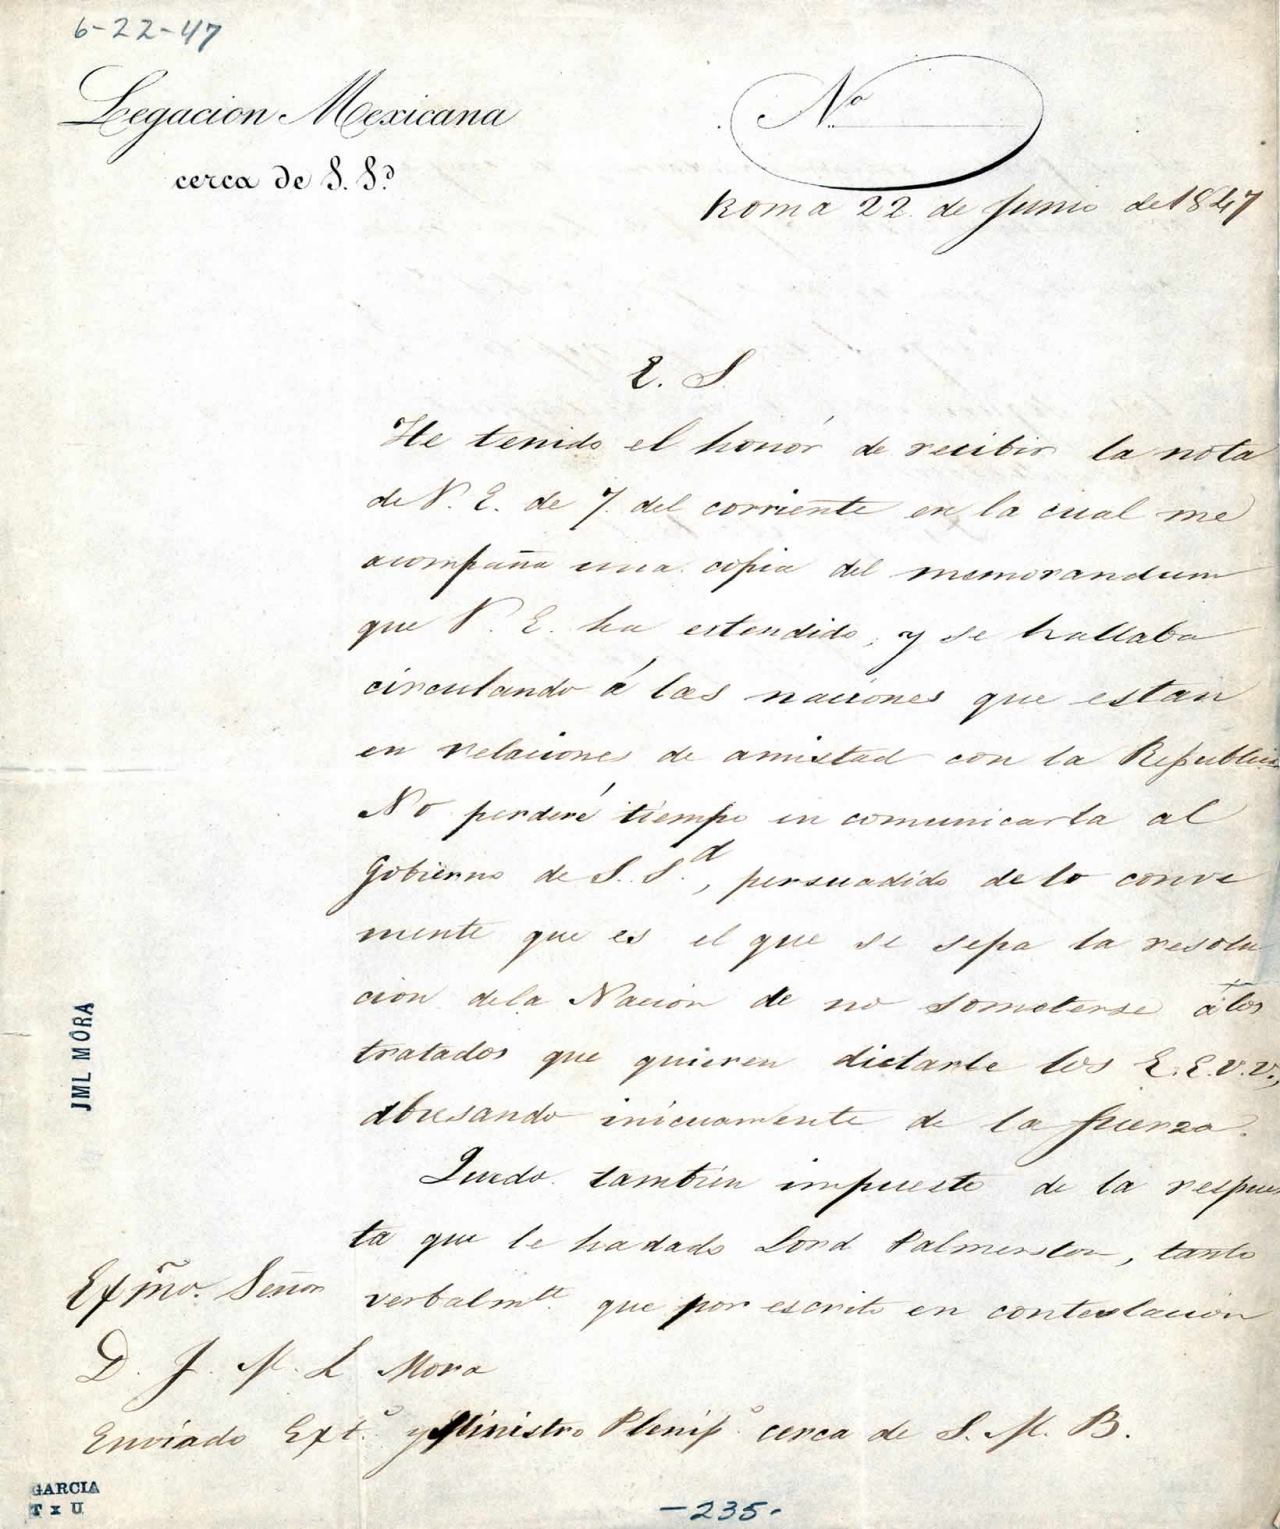 6-22-47
Legacion Mexicana
cerca de S. Sd.
No
Roma 22 de Junio de 1847
E. S.
He tenido el honór de recibir la nota
de V. E. de 7. del corriente en la cual me
acompaña una copia del memorandum
que V. E. ha estendido, y se hallaba
circulando á las naciones que estan
en relaciones de amistad con la Republica
No perderé tiempo en comunicarla al
Gobierno de S. S.d, persuadido de lo conve
niente que es el que se sepa la resolu
cion dela Nación de no someterse á los
tratados que quieren dictarle los E.E.V.V.,
abusando inicuamente de la fuerza.
Quedo tambien impuesto de la respues
ta que le hadado Lord Palmerston, tanto
verbalmte. que por escrito en contestacion
Exmo. Señor
D. J. M. L Mora
Enviado Exto. y Ministro Plenipo. cerca de S. M. B.
JML MORA
GARCIA
T x U
-235-